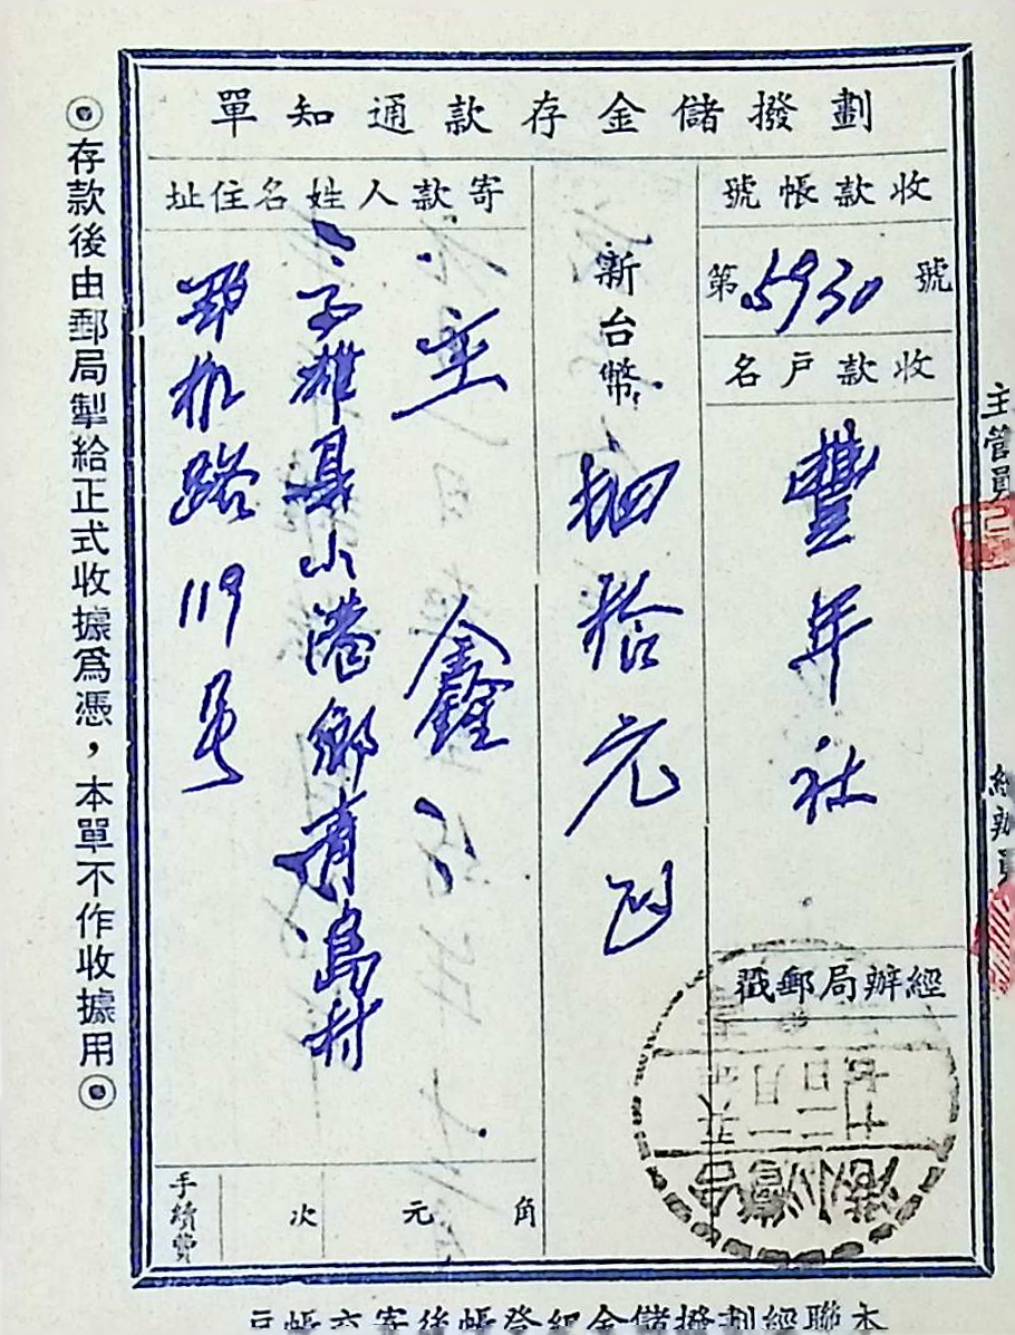 劃撥儲金存款通知單
收款帳號
第5930號
收款戶名
豐年社
經辦局郵戳
新台幣
拾元
寄款人姓名住址
鑫
港鄉青島村
路119号
手續費
次
元
角
主管員
經辦員
台灣小港
◉存款後由郵局掣給正式收據為憑，本單不作收據用◉
本聯經劃撥儲金組登帳後寄交帳戶